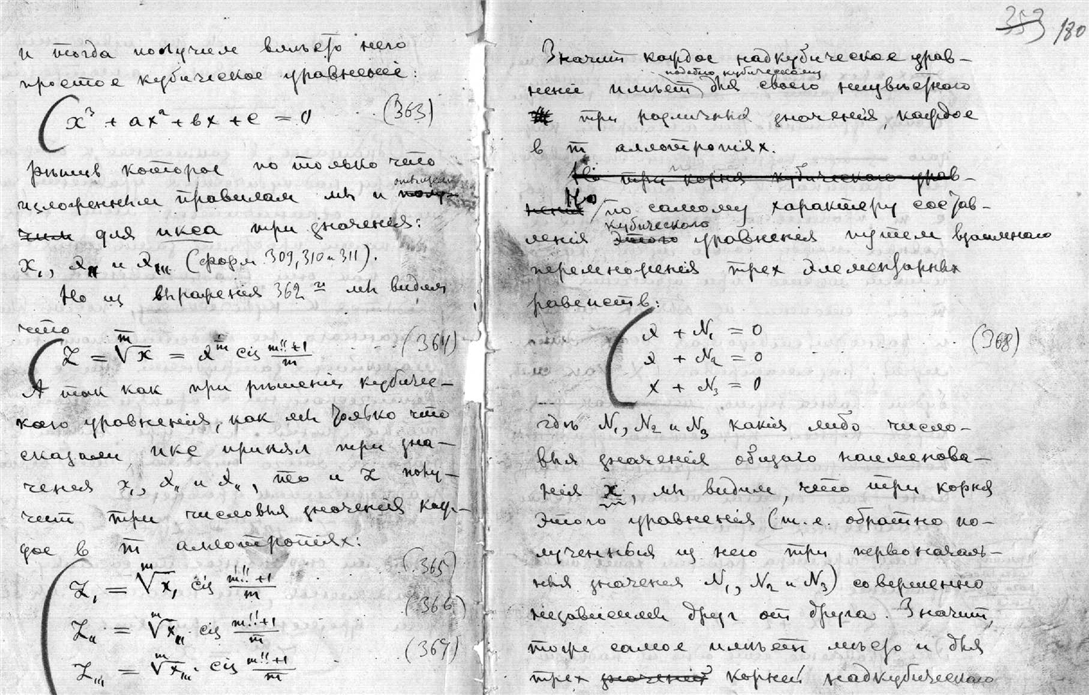 и тогда получим вместо него
простое кубическое уравненіе:
x³ + ax² + bx + c = 0 (363)
рѣшив которое по только что
изложенным правилам мы и
для икса три значенія:
x₁, x₁₁ и x₁₁₁ (форм 309, 310 и 311).
Но из выраженія 362 мы видим
что
Z = ᵐ√x = xᵐ cis m!!+1/m (364)
А так как при рѣшеніи кубичес-
каго уравненія, как мы только что
сказали икс принял три зна-
ченія x₁, x₁₁ и x₁₁, то и Z полу-
чит три числовыя значенія каж-
дое в m аллотропіях:
Z₁ = ᵐ√x₁ cis m!!+1/m (365)
Z₁₁ = ᵐ√x₁₁ cis m!!+1/m (366)
Z₁₁₁ = ᵐ√x₁₁₁ cis m!!+1/m (367)
359 180
Значит каждое надкубическое урав-
подобно кубическому
неніе имѣет для своего неизвѣстного
три различныя значенія, каждое
в m аллотропіях.
три корня кубическаго урав-
Но по самому характеру состав-
кубического
ленія этого уравненія путем взаимного
перемноженія трех элементарных
равенств:
x + N₁ = 0
x + N₂ = 0 (368)
x + N₃ = 0
гдѣ N₁, N₂ и N₃ какія либо число-
выя значенія общаго наименова-
нія x мы видим что три корня
этого уравненія (т.е. обратно по-
лученныя из него три первоначаль-
ныя значенія N₁, N₂ и N₃) совершенно
независимы друг от друга. Значит,
тоже самое имѣет мѣсто и для
трех значеній корней надкубического